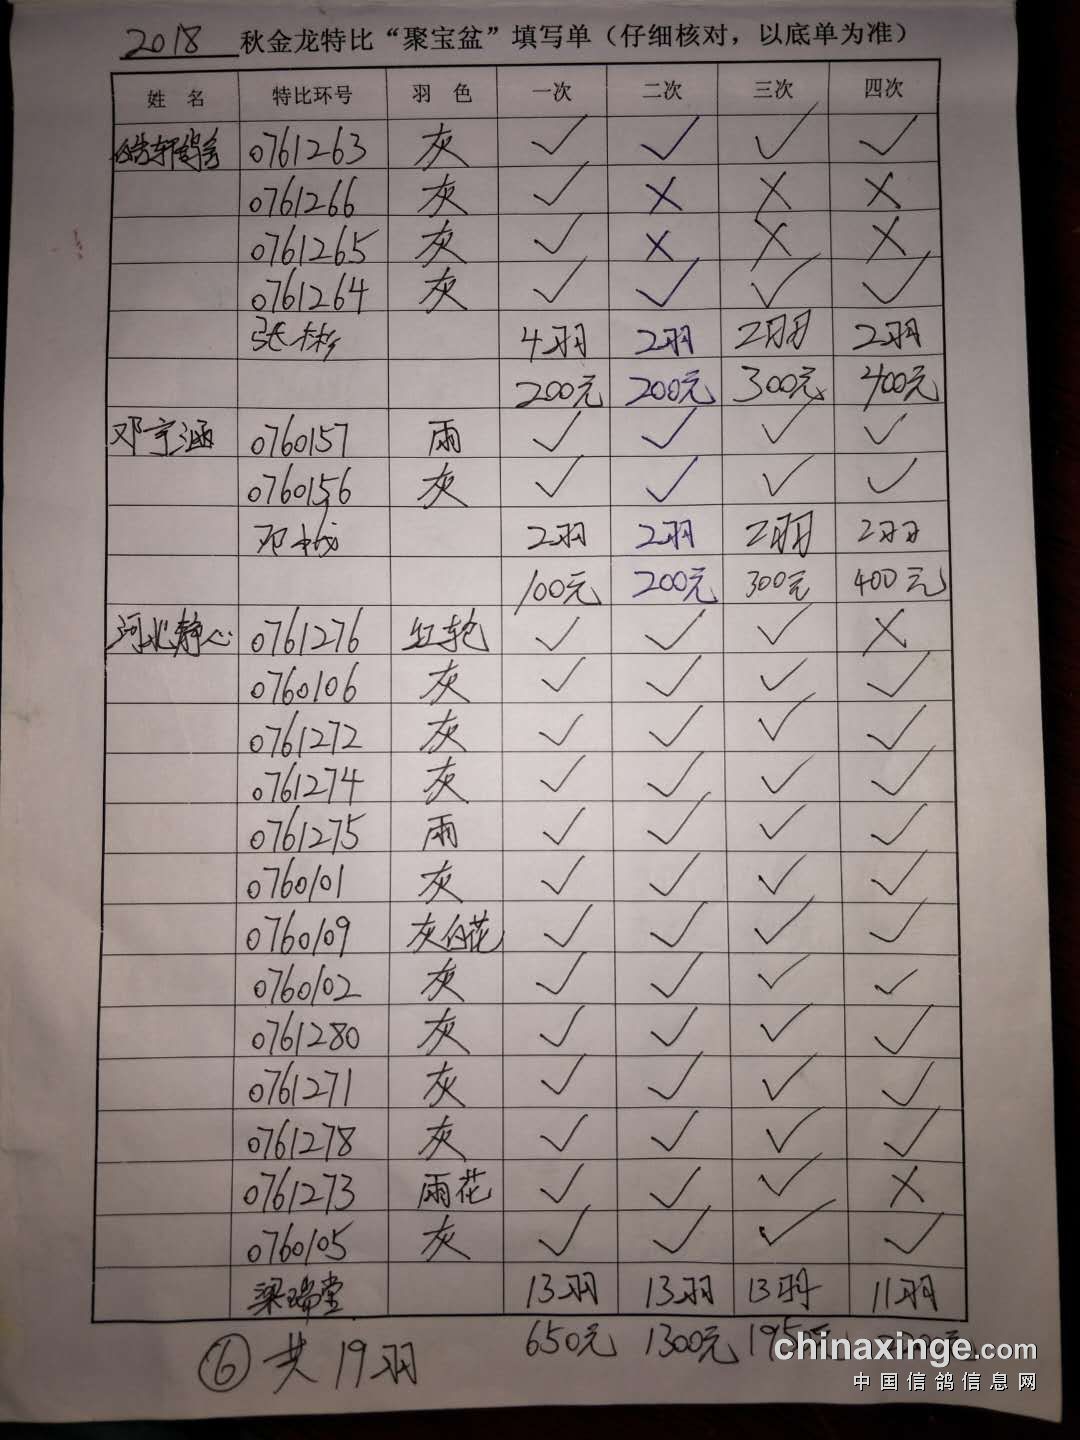 2018 秋金龙特比“聚宝盆”填写单（仔细核对，以底单为准）
姓 名 特比环号 羽 色 一次 二次 三次 四次
皓轩鸽舍 0761263 灰 ✓ ✓ ✓ ✓
0761266 灰 ✓ × × ×
0761265 灰 ✓ × × ×
0761264 灰 ✓ ✓ ✓ ✓
张彬 4羽 2羽 2羽 2羽
200元 200元 300元 400元
邓宇涵 0760157 雨 ✓ ✓ ✓ ✓
0760156 灰 ✓ ✓ ✓ ✓
2羽 2羽 2羽 2羽
100元 200元 300元 400元
河北静心 0761276 红轮 ✓ ✓ ✓ ×
0760106 灰 ✓ ✓ ✓ ✓
0761272 灰 ✓ ✓ ✓ ✓
0761274 灰 ✓ ✓ ✓ ✓
0761275 雨 ✓ ✓ ✓ ✓
0760101 灰 ✓ ✓ ✓ ✓
0760109 灰白花 ✓ ✓ ✓ ✓
0760102 灰 ✓ ✓ ✓ ✓
0761280 灰 ✓ ✓ ✓ ✓
0761271 灰 ✓ ✓ ✓ ✓
0761278 灰 ✓ ✓ ✓ ✓
0761273 雨花 ✓ ✓ ✓ ×
0760105 灰 ✓ ✓ ✓ ✓
梁瑞堂 13羽 13羽 13羽 11羽
650元 1300元
⑥ 共19羽
chinaxinge.com
中国信鸽信息网